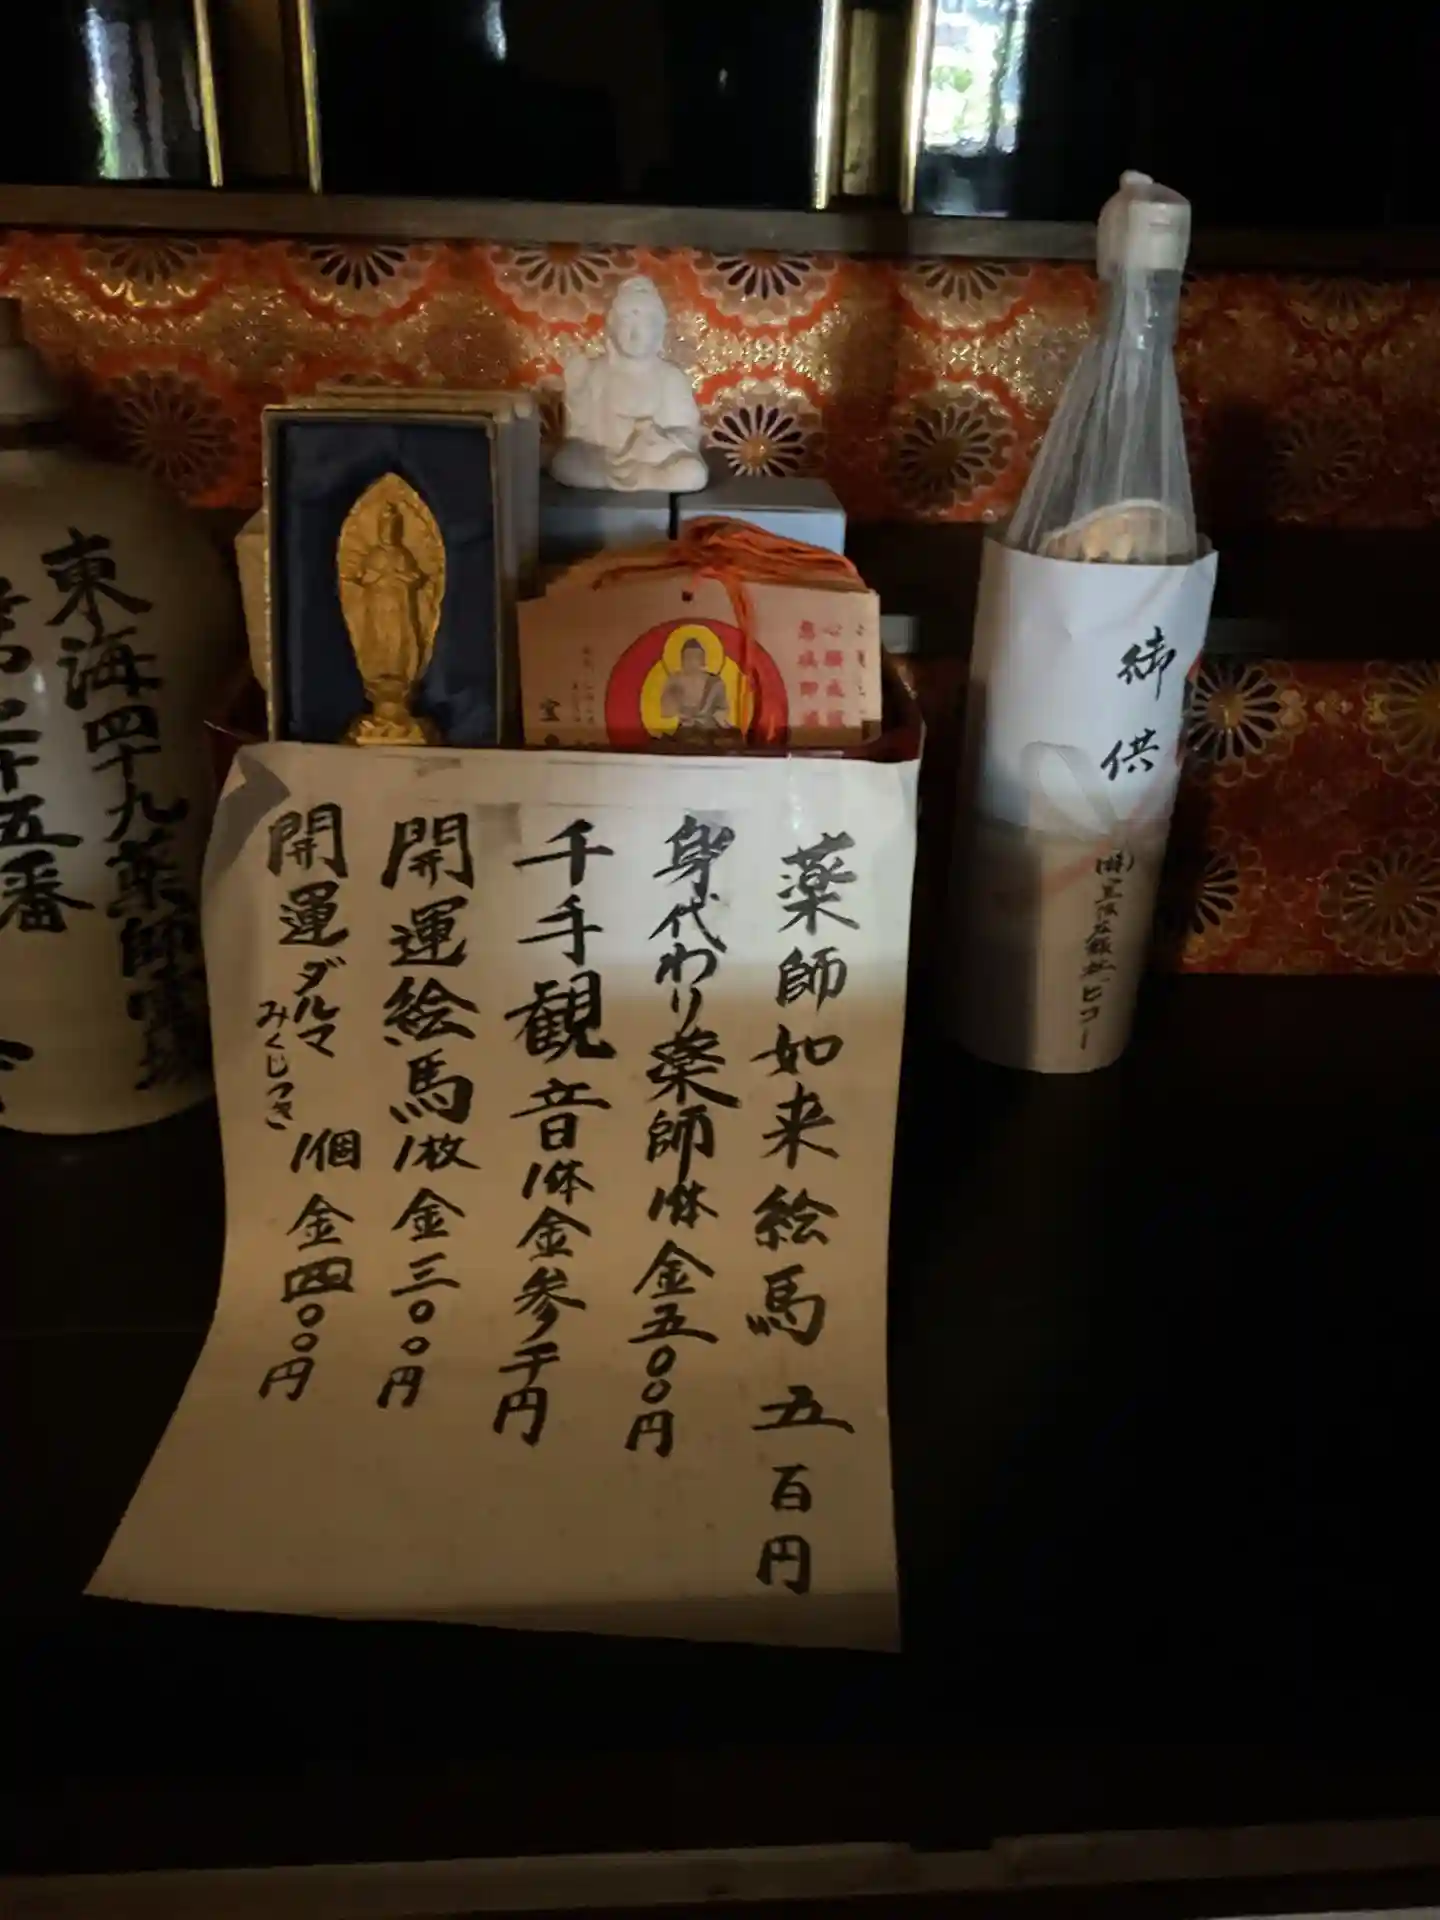 御供
薬師如来絵馬 五百円
身代わり薬師 1体 金五〇〇円
千手観音 1体 金参千円
開運絵馬 1枚 金三〇〇円
開運ダルマ 1個 金四〇〇円
みくじつき
東海四十九薬師霊場
第二十五番